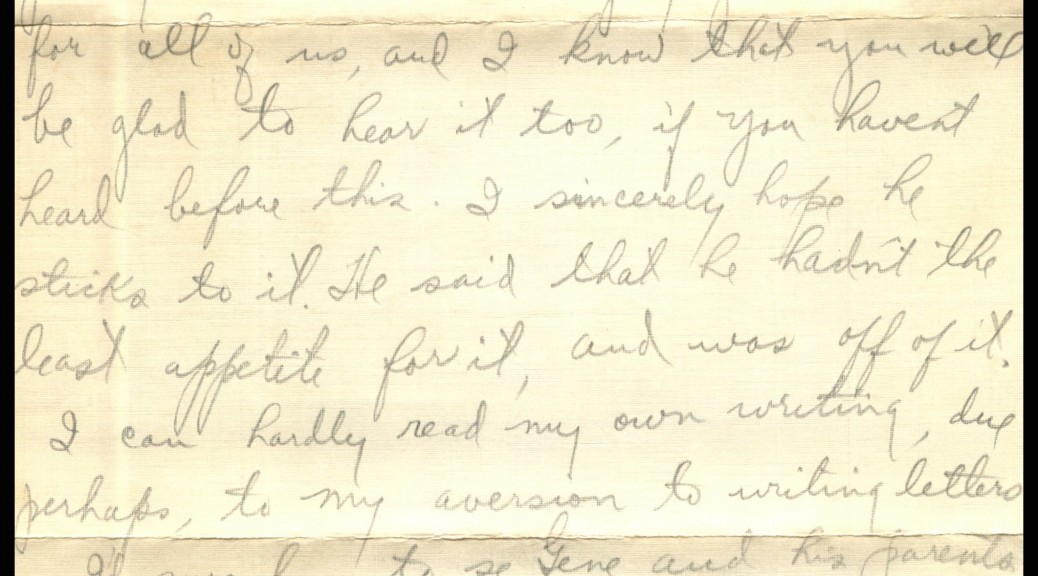 for all of us, and I know that you will
be glad to hear it too, if you havent
heard before this. I sincerely hope he
sticks to it. He said that he hadn't the
least appetite for it, and was off of it.
I can hardly read my own writing, due
perhaps, to my aversion to writing letters
to se Gene and his parents